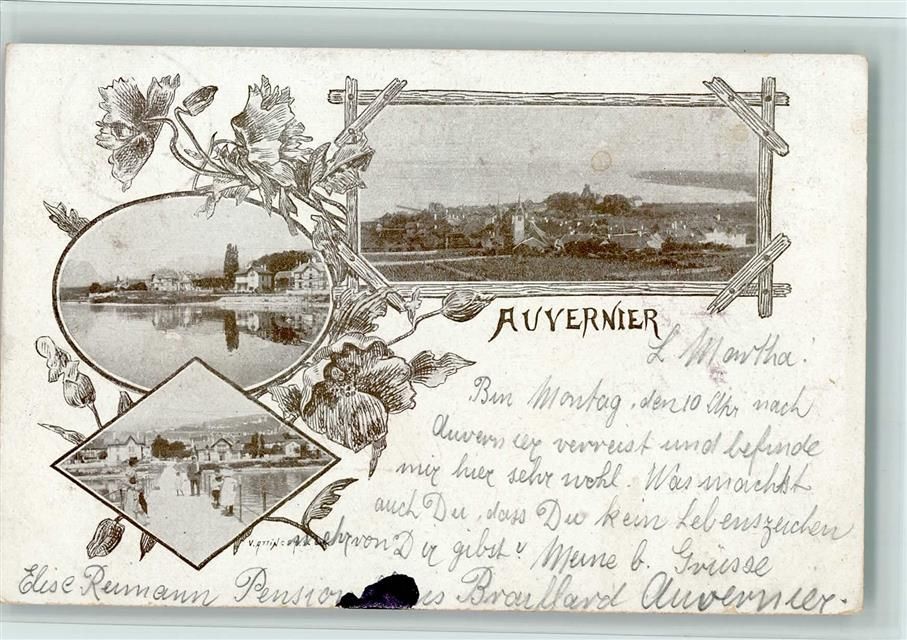 AUVERNIER
L Martha!
Bin Montag, den 10 Uhr nach
Auvernier verreist und befinde
mir hier sehr wohl. Was machst
auch Du, dass Du kein Lebenszeichen
mehr von Dir gibst? Meine b. Grüsse
Elise Reimann Pension Braillard Auvernier.